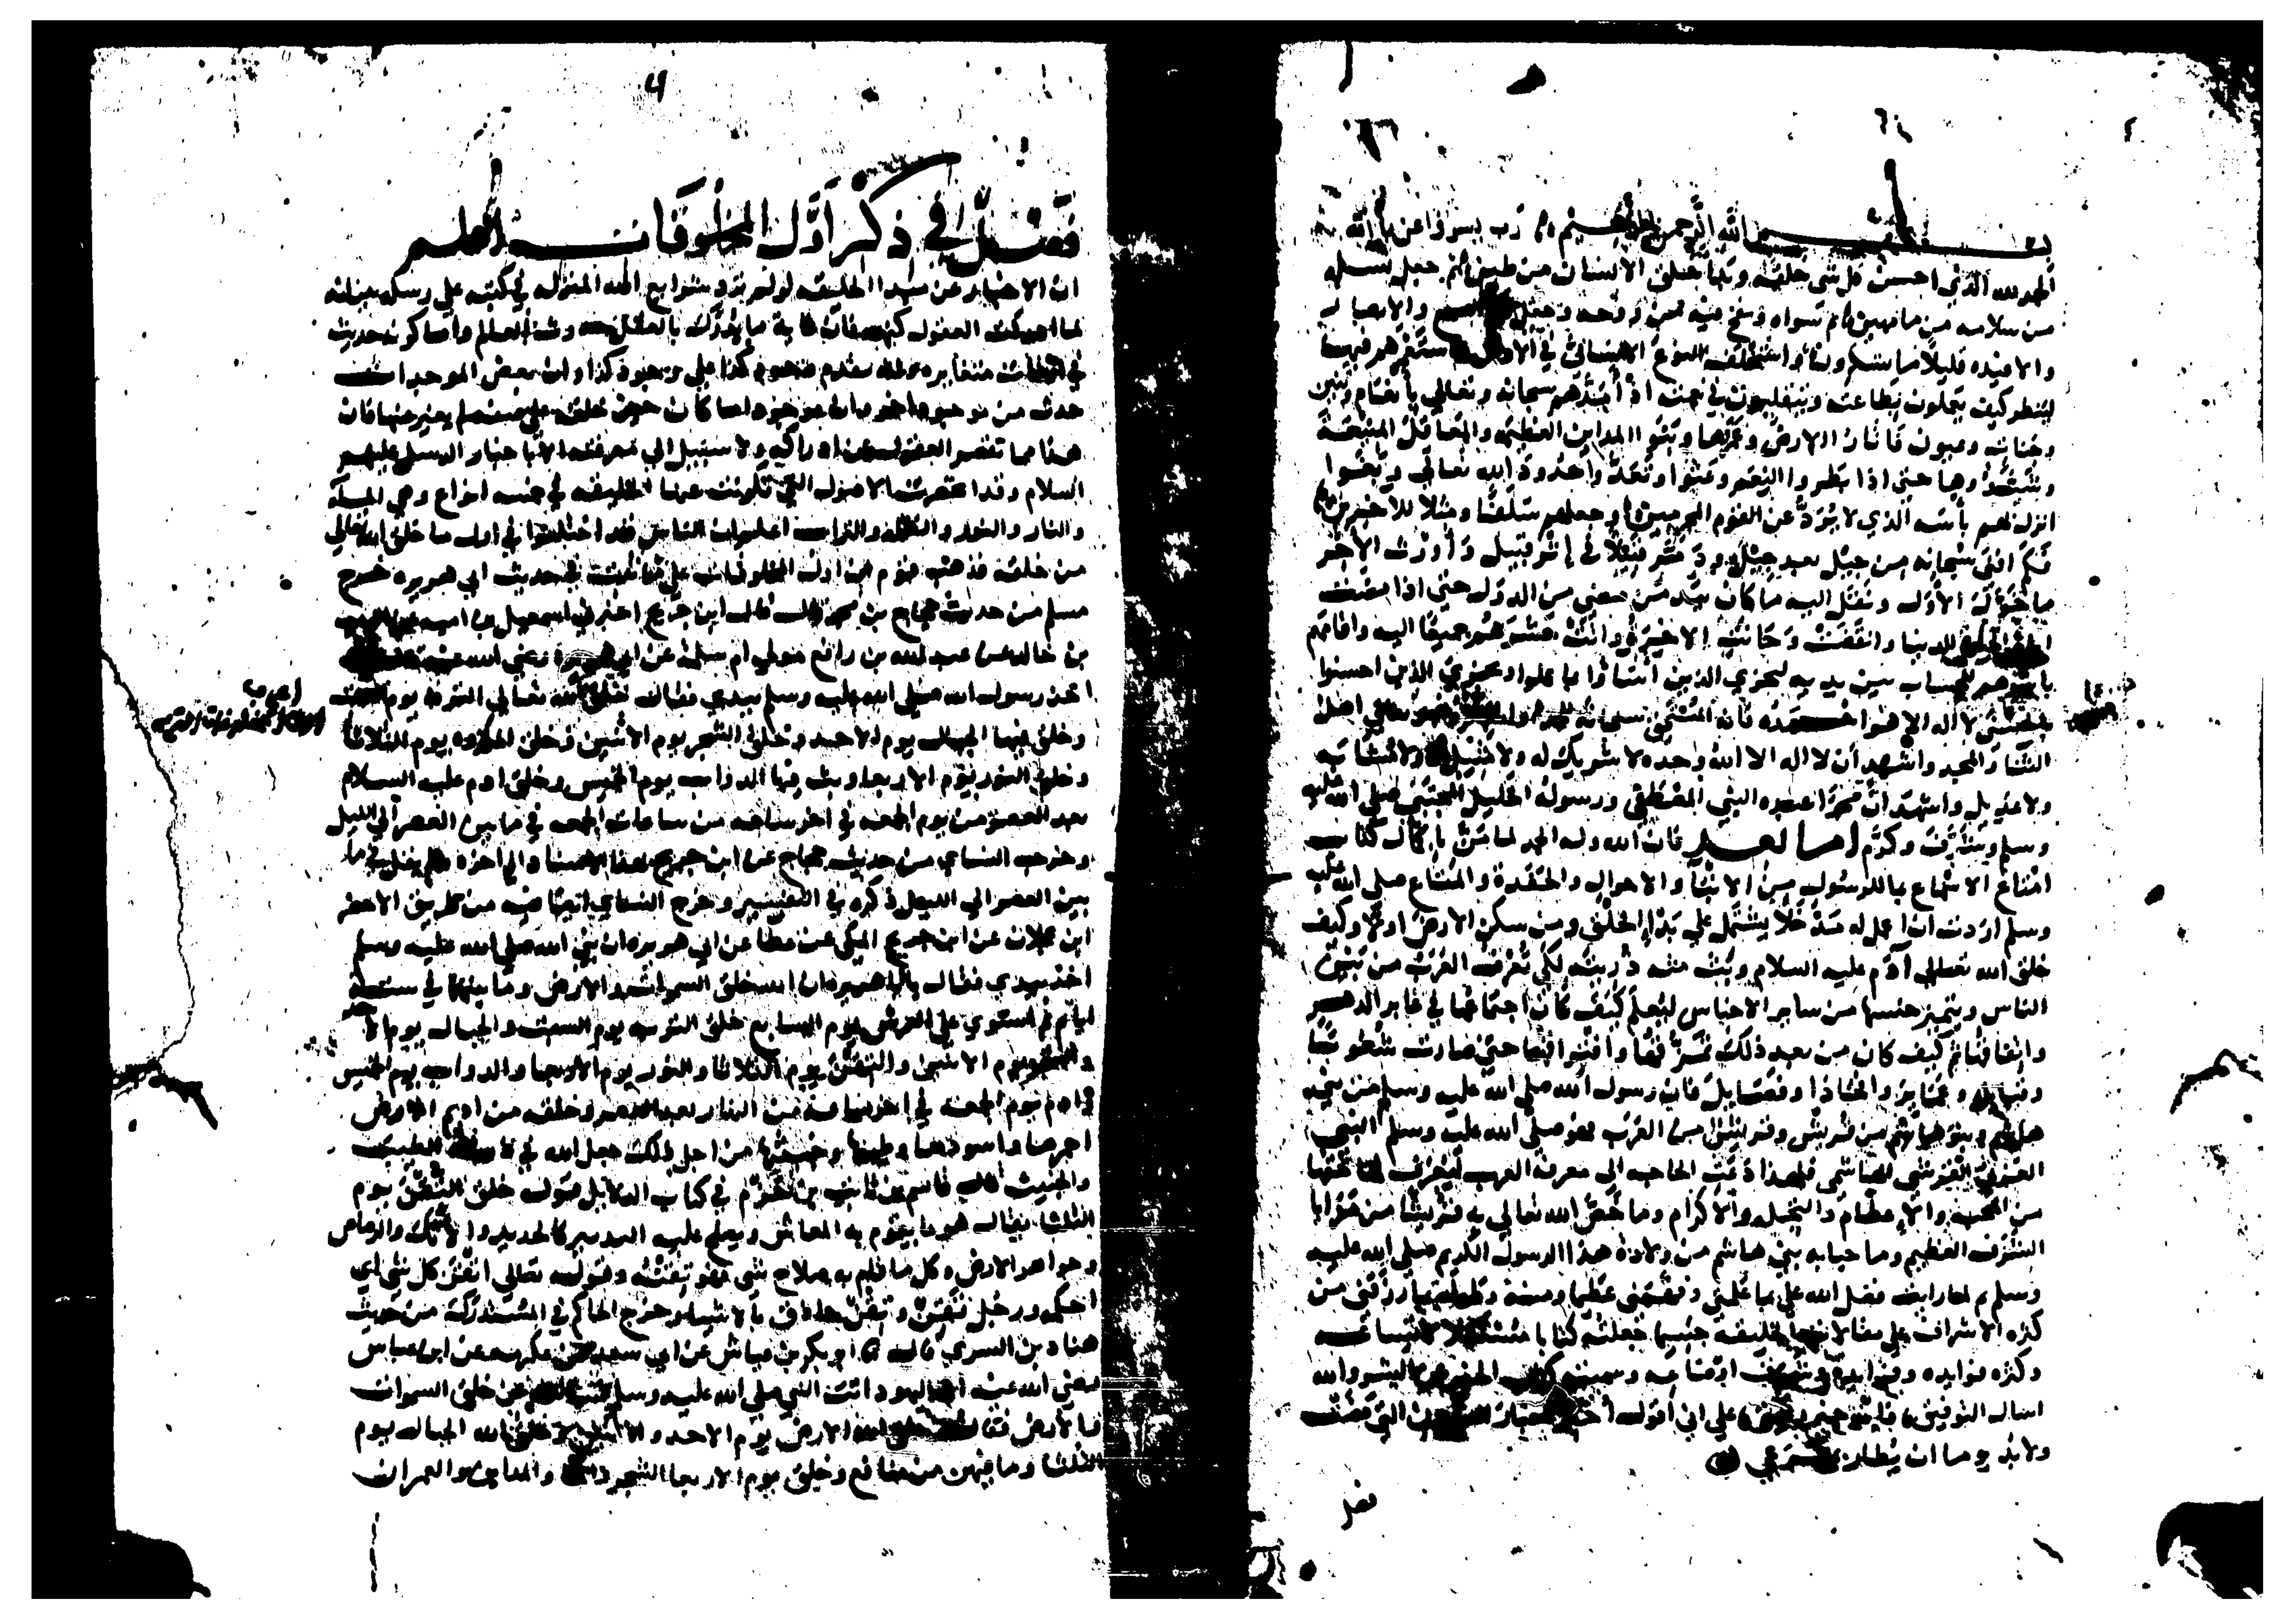 بسم الله الرحمن الرحيم رب يسر واعن يا الله
الحمد لله الذي احسن كل شي خلقه وبدا خلق الانسان من طين ثم جعل نسله
من سلاله من ما مهين ثم سواه ونفخ فيه من روحه وجعل والابصار
والافيده قليلا ما تشكرون واستخلف النوع الانساني في الارض واستعمرهم فيها
لينظر كيف يعملون بطاعته ويتقلبون في نعمته اذ امدهم سبحانه وتعالي بانعام وبنين
وجنات وعيون فاثاروا الارض وعمروها وبنوا المداين العظيمه والمعاقل المنيعة
حتي اذا بطروا النعم وعتوا وتعدوا حدود الله تعالي وبغوا
انزل بهم باسه الذي لا يرد عن القوم المجرمين وجعلهم سلفا ومثلا للاخرين
فكم افني سبحانه من جيل بعد جيل ودمر قبيلا في اثر قبيل واورث الاخر
ما خوله الاول ونقل اليه ما كان بيد من مضي من الدول حتي اذا مضت
الدنيا وانقضت وجاءت الاخرة واتت حشرهم جميعا اليه واقامهم
للحساب بين يديه ليجزي الذين اساؤا بما عملوا ويجزي الذين احسنوا
بالحسني لا اله الا هو فانه المستحق سبحانه وهو تعالي اهل
الثنا والمجد واشهد ان لا اله الا الله وحده لا شريك له ولا مثيل ولا مشابه
ولا عديل واشهد ان محمدا عبده النبي المصطفي ورسوله الخليل المجتبي صلي الله عليه
وسلم وشرف وكرم اما بعد فان الله وله الحمد لما من باكمال كتاب
امتاع الاسماع بما للرسول من الانبا والاحوال والحفدة والمتاع صلي الله عليه
وسلم اردت ان اعمل له مدخلا يشتمل علي بدا الخلق ومن سكن الارض اولا وكيف
خلق الله تعالي آدم عليه السلام وبث منه ذريته لكي تعرف العرب من بين
الناس ويتميز جنسها من ساير الاجناس ليعلم كيف كان اجتماعها في غابر الدهر
واتفاقها ثم كيف كان من بعد ذلك تمزقها وافتراقها حتي صارت شعوبا
وقبايل وعمايرا وافخاذا وفصايل فان رسول الله صلي الله عليه وسلم من بني
هاشم وبنو هاشم من قريش وقريش من العرب فهو صلي الله عليه وسلم النبي
العربي القرشي الهاشمي فلهذا دعت الحاجه الي معرفة العرب ليعرف حقها
من المحبه والاعظام والتبجيل والاكرام وما خص الله تعالي به قريشا من مزايا
الشرف العظيم وما حباه بني هاشم من ولادة هذا الرسول الكريم صلي الله عليه
وسلم ولما رايت فضل الله علي بما علمني وفهمني عظيما ومننه بما رزقني من
كثره الاشراف علي مقالات الخليقه جسيما جعلته كتابا مستقلا لاتساعه
وكثره فوايده اوضاعه وسميته كتاب الخبر عن البشر والله
اسال التوفيق علي اني اقول التي قضت
ولا بد يوما ان
فصل
فصل في ذكر اول المخلوقات اعلم
ان الاخبار عن مبدا الخليقه لو لم يرد بشرايع الله المنزله في كتبه علي رسله
لما ادركت العقول كنهه فان غاية ما يدرك بالعقل حدوث العالم وانما كونه حديث
في اوقات متغايره وانه تقدم وجود كذا علي وجود كذا وان بعض الموجدات
حدث من موجود اخر
هذا مما تقصر العقول عن ادراكه ولا سبيل الي معرفته الا باخبار الرسل عليهم
السلام وقد انحصرت الاصول التي تكونت عنها الخليقه في خمسه انواع وهي الماء
والنار والنور والظلمه والتراب اعلم ان الناس قد اختلفوا في اول ما خلق الله تعالي
من خلقه فذهب قوم ان اول المخلوقات علي ما ثبت في حديث ابي هريره خرج
مسلم من حديث حجاج بن محمد قال قال ابن جريج اخبرني اسمعيل بن اميه عن ايوب
بن خالد عن عبد الله بن رافع مولي ام سلمه عن ابي هريرة رضي الله عنه
اخذ رسول الله صلي الله عليه وسلم بيدي فقال خلق الله تعالي التربه يوم السبت
وخلق فيها الجبال يوم الاحد وخلق الشجر يوم الاثنين وخلق المكروه يوم الثلاثا
وخلق النور يوم الاربعا وبث فيها الدواب يوم الخميس وخلق ادم عليه السلام
بعد العصر من يوم الجمعه في اخر ساعه من ساعات الجمعه في ما بين العصر الي الليل
وخرجه النساي من حديث حجاج عن ابن جريج بهذا الاسناد الي اخره ولم يقل في ما
بين العصر الي الليل ذكره في التفسير وخرج النساي ايضا فيه من طريق الاخضر
ابن عجلان عن ابن جريج المكي عن عطا عن ابي هريره ان نبي الله صلي الله عليه وسلم
اخذ بيدي فقال يا ابا هريره ان الله خلق السموات والارض وما بينهما في سته
ايام ثم استوي علي العرش يوم السابع خلق التربه يوم السبت والجبال يوم الاحد
والشجر يوم الاثنين والتقن يوم الثلاثا والنور يوم الاربعا والدواب يوم الخميس
وادم يوم الجمعه في اخر ساعة من النهار بعد العصر وخلقه من اديم الارض
احمرها واسودها وطيبها وخبيثها من اجل ذلك جعل الله في الطيب
والخبيث قال قاسم بن ثابت بن حزم في كتاب الدلايل قوله خلق التقن يوم
الثلثا يقال هو ما يقوم به المعاش ويصلح عليه التدبير كالحديد والآنك والرصاص
وجواهر الارض وكل ما قام به صلاح شي فهو تقنه وقوله تعالي اتقن كل شي اي
احكم ورجل تقن وتقن حاذق بالاشيا وخرج الحاكم في المستدرك من حديث
هناد بن السري قال ثنا ابو بكر بن عياش عن ابي سعد عن عكرمه عن ابن عباس
رضي الله عنه ان اليهود اتت النبي صلي الله عليه وسلم عن خلق السموات
والارض فقال خلق الله الارض يوم الاحد والاثنين وخلق الله الجبال يوم
الثلثا وما فيهن من منافع وخلق يوم الاربعا الشجر والمداين والعمران